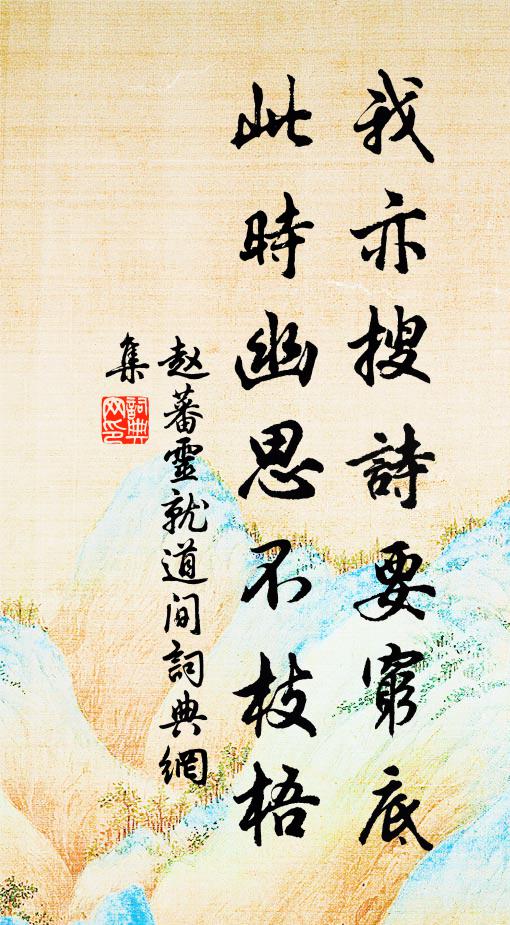 我亦搜詩要窮底
此時幽思不枝梧
赵蕃靈就道间詞典網
集
詞典网印